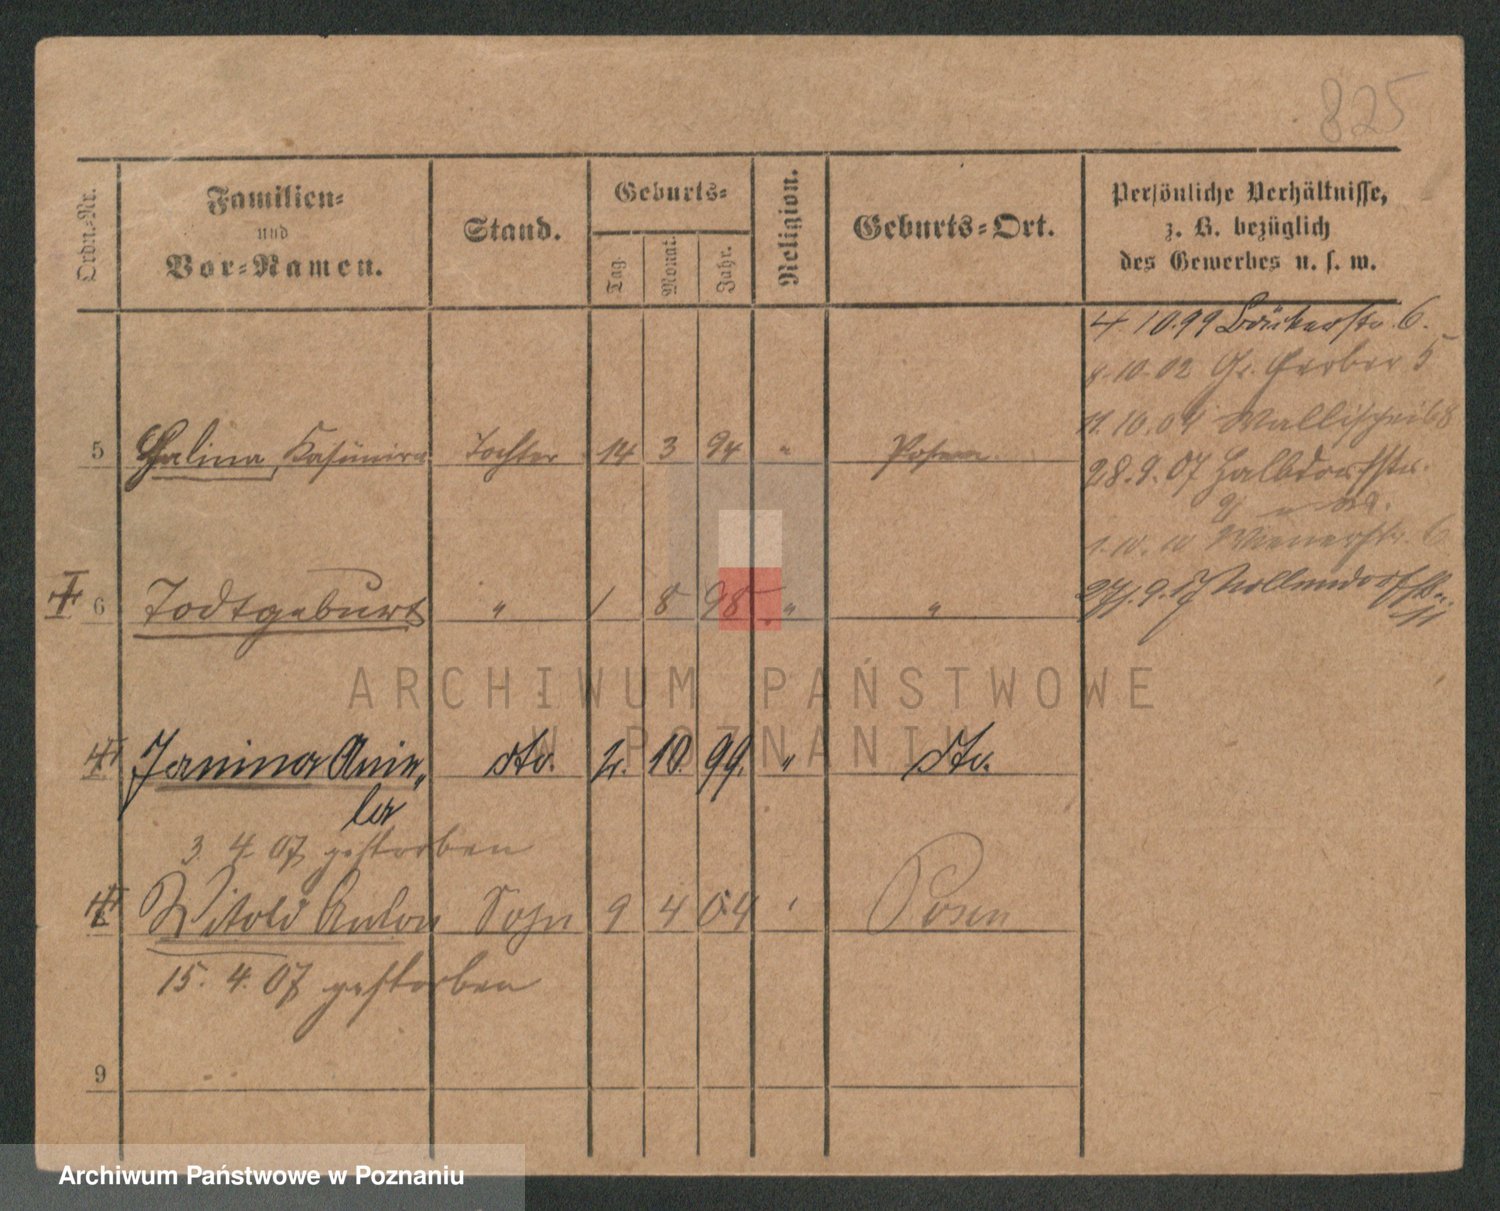 825
Ordn.-Nr.
Familien-
und
Vor-Namen.
Stand.
Geburts-
Tag.
Monat.
Jahr.
Religion.
Geburts-Ort.
Persönliche Verhältnisse,
z. B. bezüglich
des Gewerbes u. s. w.
4.10.99 Bäckerstr. 6.
8.10.02 Gr. Gerber 5
11.10.04 Wallischei 68
5 Halina Kasimira Tochter 14 3 94 " Posen
28.9.07 Halbdorfstr.
1.10.10 Wienerstr. 6
6 Todtgeburt " 1 8 98 " "
27.9.17 Nollendorfstr.
ARCHIWUM PAŃSTWOWE
W POZNANIU
Janina Anie„ dto. 2. 10. 99. " dto.
la
3. 4. 07 gestorben
Witold Anton Sohn 9 4 04 ' Posen
15. 4. 07 gestorben
9
Archiwum Państwowe w Poznaniu